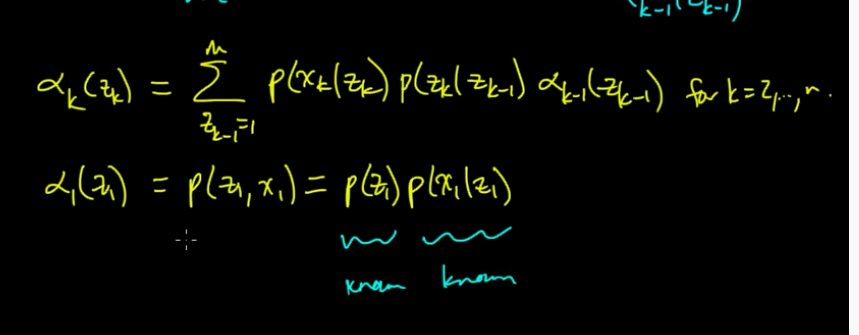 k-1(z_{k-1})
α_k(z_k) = ∑_{z_{k-1}=1}^{m} p(x_k|z_k) p(z_k|z_{k-1}) α_{k-1}(z_{k-1}) for k=2,...,n.
α_1(z_1) = p(z_1, x_1) = p(z_1) p(x_1|z_1)
known known